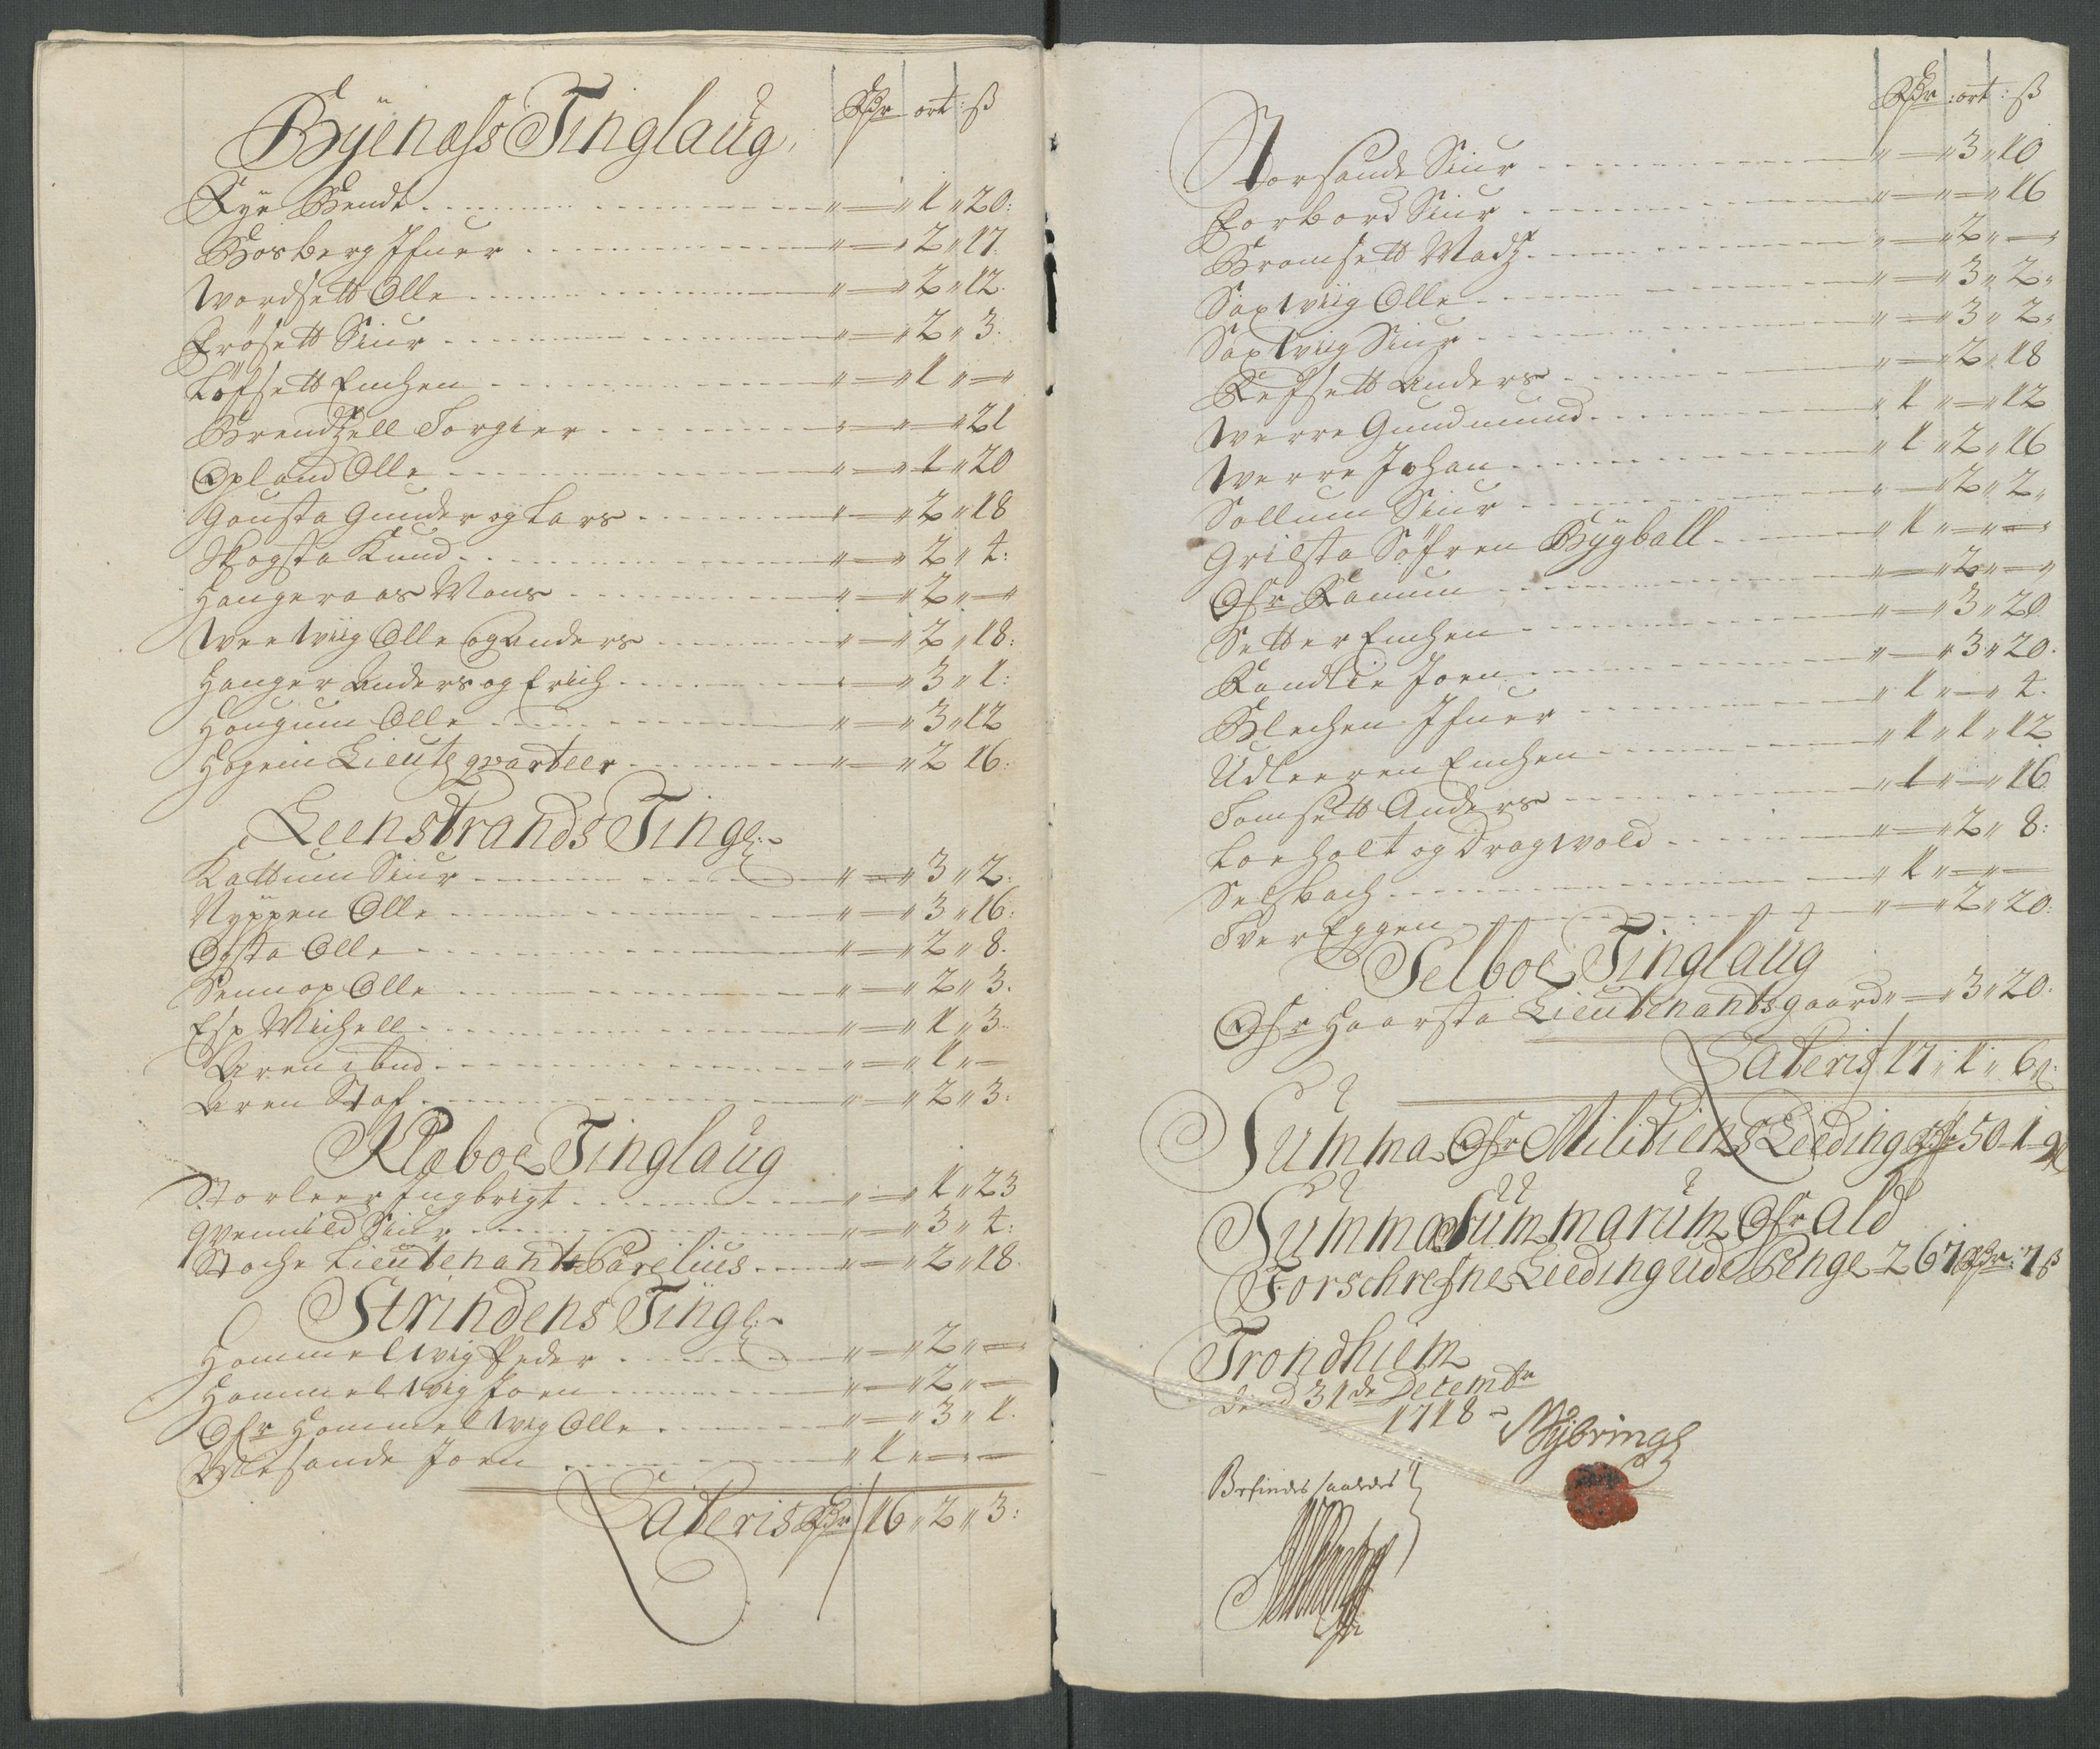 Byenæss Tinglaug,
Rdr ort: ß
Rye Bendt - „ — „ 1 „ 20:
Bosberg Ifuer - „ — „ 2 „ 17.
Wordsett Olle - „ — „ 2 „ 12.
Frösett Siur - „ — „ 2 „ 3.
Löfsett Enchen - „ — „ 1 „ — „
Brendzell Torgier - „ — „ — „ 21
Opland Olle - „ — „ 1 „ 20
Gousta Gunder og Lars - „ — „ 2 „ 18
Skogsta Knud - „ — „ 2 „ 4:
Haugeraas Mons - „ — „ 2 „ — „
Weelwiig Olle og Anders - „ — „ 2 „ 18:
Hanger Anders og Erich - „ — „ 3 „ 1:
Hougum Olle - „ — „ 3 „ 12
Hogein Lieutz qvarteer - „ — „ 2 16:
Leenstrands Tingl:
Kattum Siur - „ — „ 3 „ 2:
Nyppen Olle - „ — „ 3 „ 16:
Opsta Olle - „ — „ 2 „ 8.
Sennop Olle - „ — „ 2 „ 3.
Esp Michell - „ — „ 1 „ 3.
Aren ibnd - „ — „ 1 „ —
Aren Staf - „ — „ 2 „ 3:
Klæboe Tinglaug
Storleer Ingbrigt - „ — „ 1 „ 23
Qvenild Siur - „ — „ 3 „ 4:
Stoche Lieutenant Parelius - „ — „ 2 „ 18
Strindens Tingl:
Hommelwig Peder - „ — „ 2 „ —
Hommelwig Joen - „ — „ 2 „ —
Ofr Hommelwig Olle - „ — „ 3 „ 1.
Wesande Joen - „ 1 „ — „ —
Lateris Rdr 16 „ 2 „ 3:
Rdr : ort : ß
Torsande Siur - „ — „ 3 „ 10
Forbord Siur - „ — „ — „ 16
Bromsett Madz - „ — „ 2 „ — „
Saxwiig Olle - „ — „ 3 „ 2 „
Saxwiig Siur - „ — „ 3 „ 2 „
Refsett Anders - „ — „ 2 „ 18
Werre Gundmund - „ 1 „ — „ 12
Werre Johan - „ 1 „ 2 „ 16
Sollum Siur - „ — „ 2 „ 2 „
Grilsta Söfren Bÿgball - „ 1 „ — „ — „
Ofr Ranum - „ — „ 2 „ — „
Setter Enchen - „ — „ 3 „ 20
Randlie Joen - „ — „ 3 „ 20.
Blechen Ifuer - „ 1 „ — „ 4.
Udleeren Enchen - „ 1 „ 1 „ 12
Tomsett Anders - „ 1 „ — „ 16
Loeholt og Dragwold - „ — „ 2 „ 8:
Selsbach - „ 1 „ — „ —
Tver Eggen - „ — „ 2 „ 20:
Selboe Tinglaug
Ofr Haarsta Lieutenantsgaard „ — „ 3 „ 20.
Lateris 17 „ 1 „ 6
Summa Ofr Militiens Leeding Rdr 50-1-9
Summa Summarum Ofr ald
Forschrefne Leeding udi Penge 267 Rdr: 7 ß
Trondhiem
dend 31de Decembr
1718
Mÿbring
Befindes saaledes